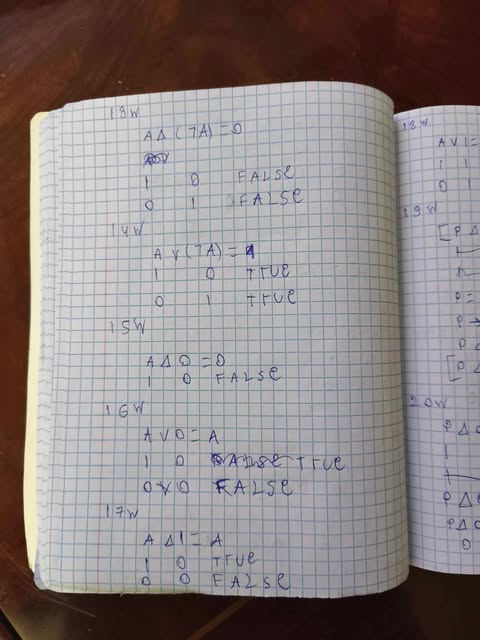 13W
A Δ (7A) = 0
1 0 FALSE
0 1 FALSE
14W
A V (7A) = 1
1 0 TRUE
0 1 TRUE
15W
A Δ 0 = 0
1 0 FALSE
16W
A V 0 = A
1 0 FALSE TRUE
0 V 0 FALSE
17W
A Δ 1 = A
1 0 TRUE
0 0 FALSE
18W
A V 1 =
1 1
0 1
19W
[P Δ
P =
P →
P Δ
[P Δ
20W
P Δ
1
P Δ
P Δ
0